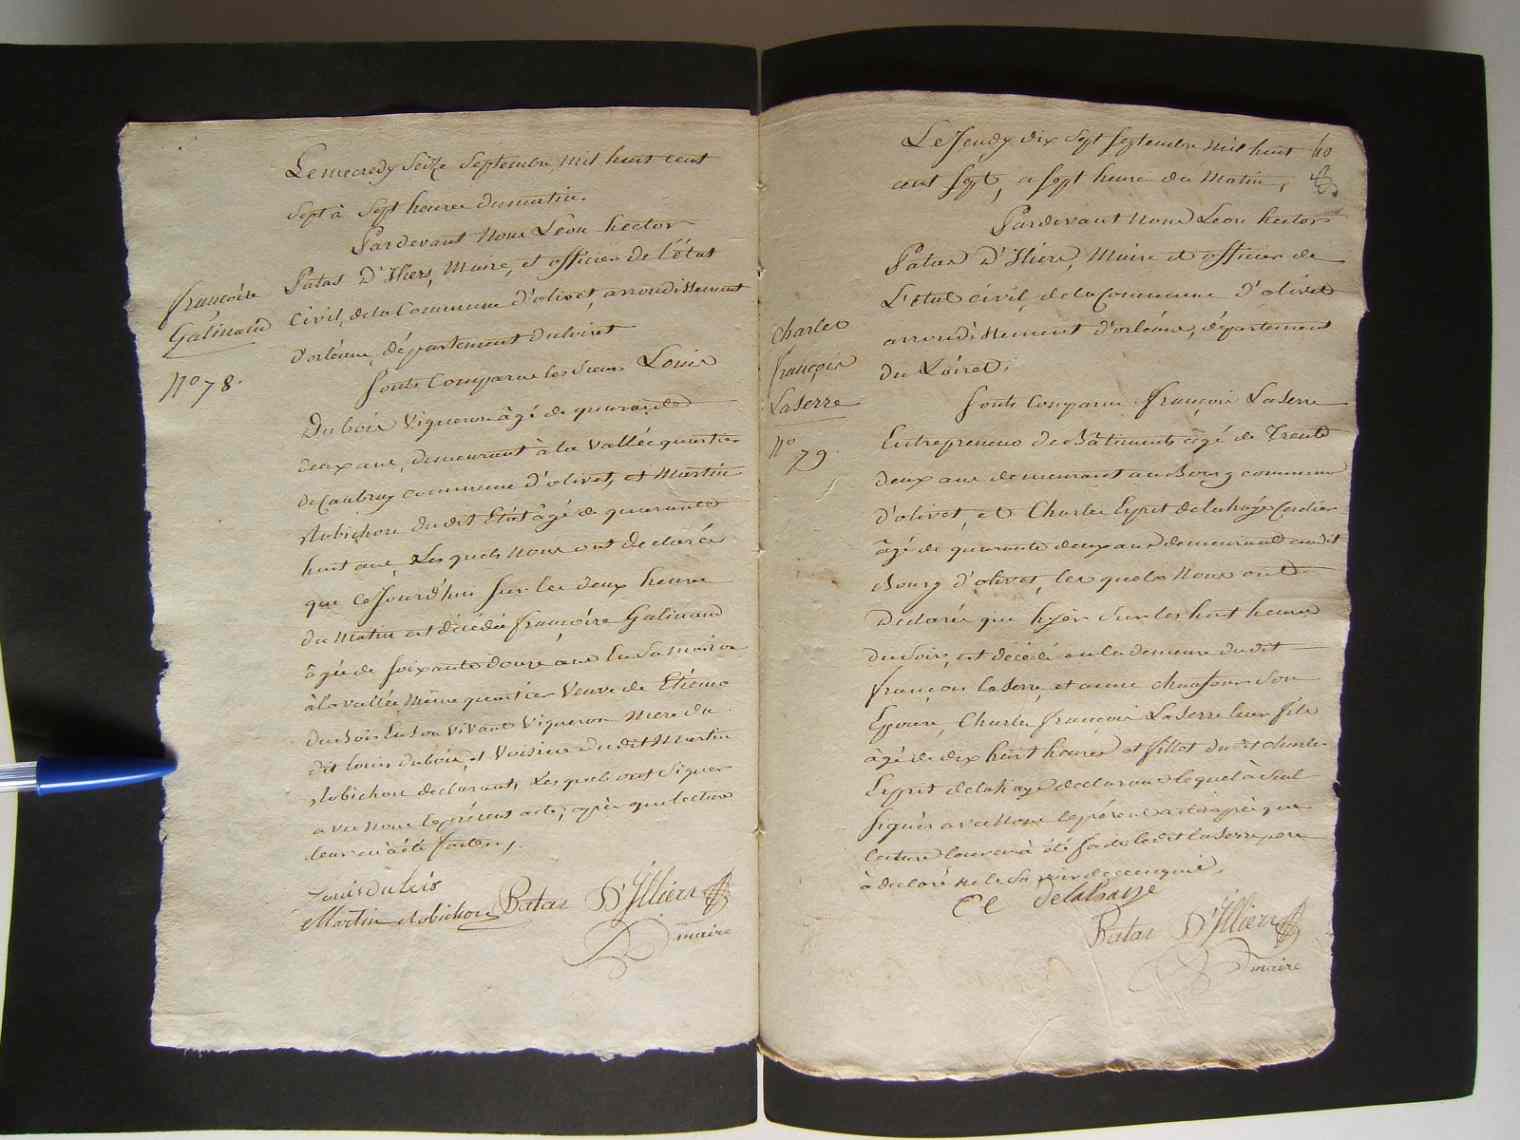 Le mecredy Seize Septembre, mil huit cent
Sept à Sept heures du matin.
Pardevant Nous Léon hector
Patas D'Illiers, Maire, et officier de l'état
Civil, de la Commune d'olivet, arrondissement
d'orléans, département du loiret
françoise
Galinand
No 78.
Sont Comparus les Sieurs Louis
Dubois Vigneron âgé de quarante
deux ans, demeurant à la Vallée quartier
de Caubray commune d'olivet, et Martin
Robichon du dit Etat âgé de quarante
huit ans, Les quels Nous ont Declarés
que Ce Jourd'hui Sur les deux heures
du Matin est décédée françoise Galinand
âgée de Soixante douze ans En Sa maison
à la vallée Même quartier Veuve de Etienne
Dubois En Son Vivant Vigneron Mere du
dit louis dubois, et Voisine du dit Martin
Robichon declarant, Les quels ont Signer
avec Nous le présent acte, après que lecture
leur en à été faite.
Louis du bois
Martin Robichon Patas D'Illiers
maire
Le Jeudy dix Sept Septembre Mil huit
40
cent Sept, a Sept heure du Matin,
Pardevant Nous Leon hector
Patas D'Illiers, Maire et officier de
L'état civil, de la Commune d'olivet
arrondissement d'orléans, département
du Loiret.
Charles
françois
LaSerre
No 79.
Sont Comparus françois LaSerre
Entrepreneur de Bâtiments âgé de Trente
deux ans demeurant au Bourg commune
d'olivet, et Charles Esprit delahaye Cordier
âgé de quarante deux ans demeurant au dit
Bourg d'olivet, les quels Nous ont
Déclarés que hyer Sur les huit heures
du Soir, est décédé en la demeure du dit
françois laSerre, et anne Son
Epouse, Charles françois LaSerre leur fils
âgé de dix huit heures et fillot du dit charles
Esprit delahaye declarant lequel à Seul
Signés avec Nous le présent acte après que
lecture leur en à été faite le dit laSerre pere
à declaré ne le Savoir de ce enquis.
C E delahaye
Patas D'Illiers
maire